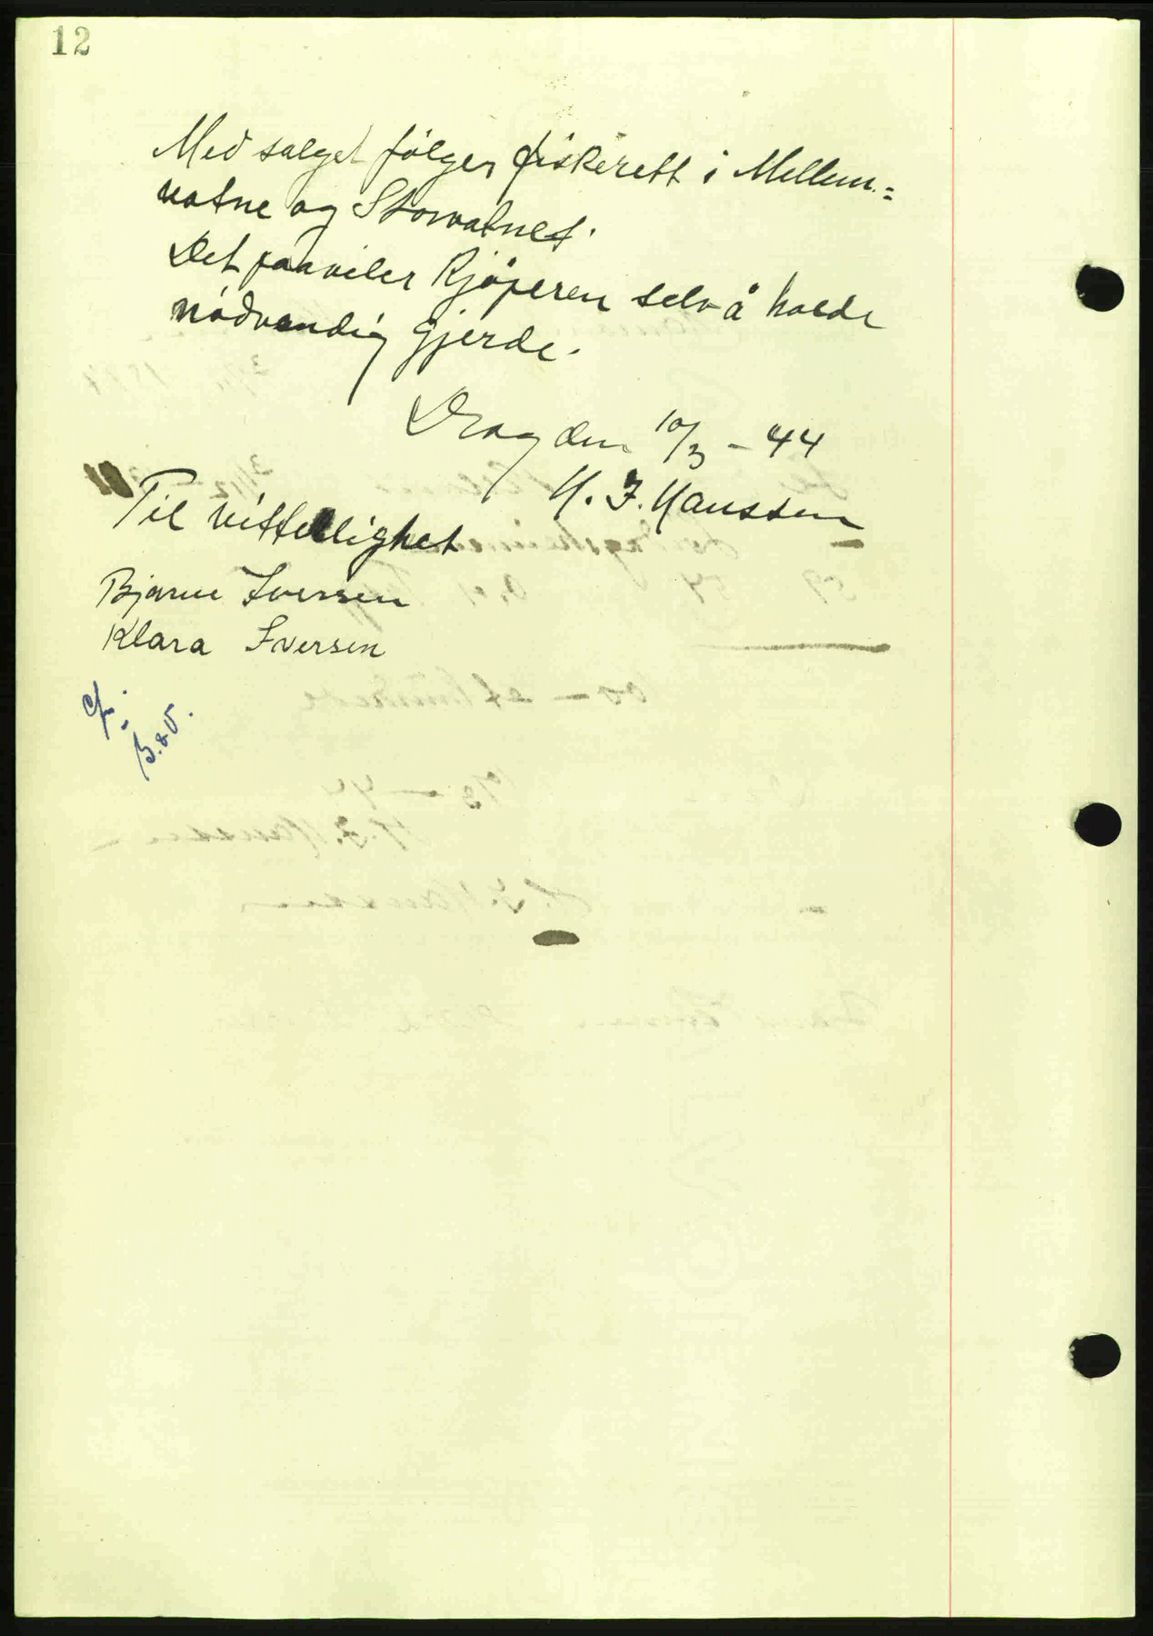 12
Med salget følger fiskerett i Mellem=
vatne og Storvatnet.
Det paaviler kjøperen selv å holde
nødvendig gjerde.
Drag den 10/3 - 44
H. J. Hanssen
Til vitterlighet
Bjarne Iversen
Klara Iversen